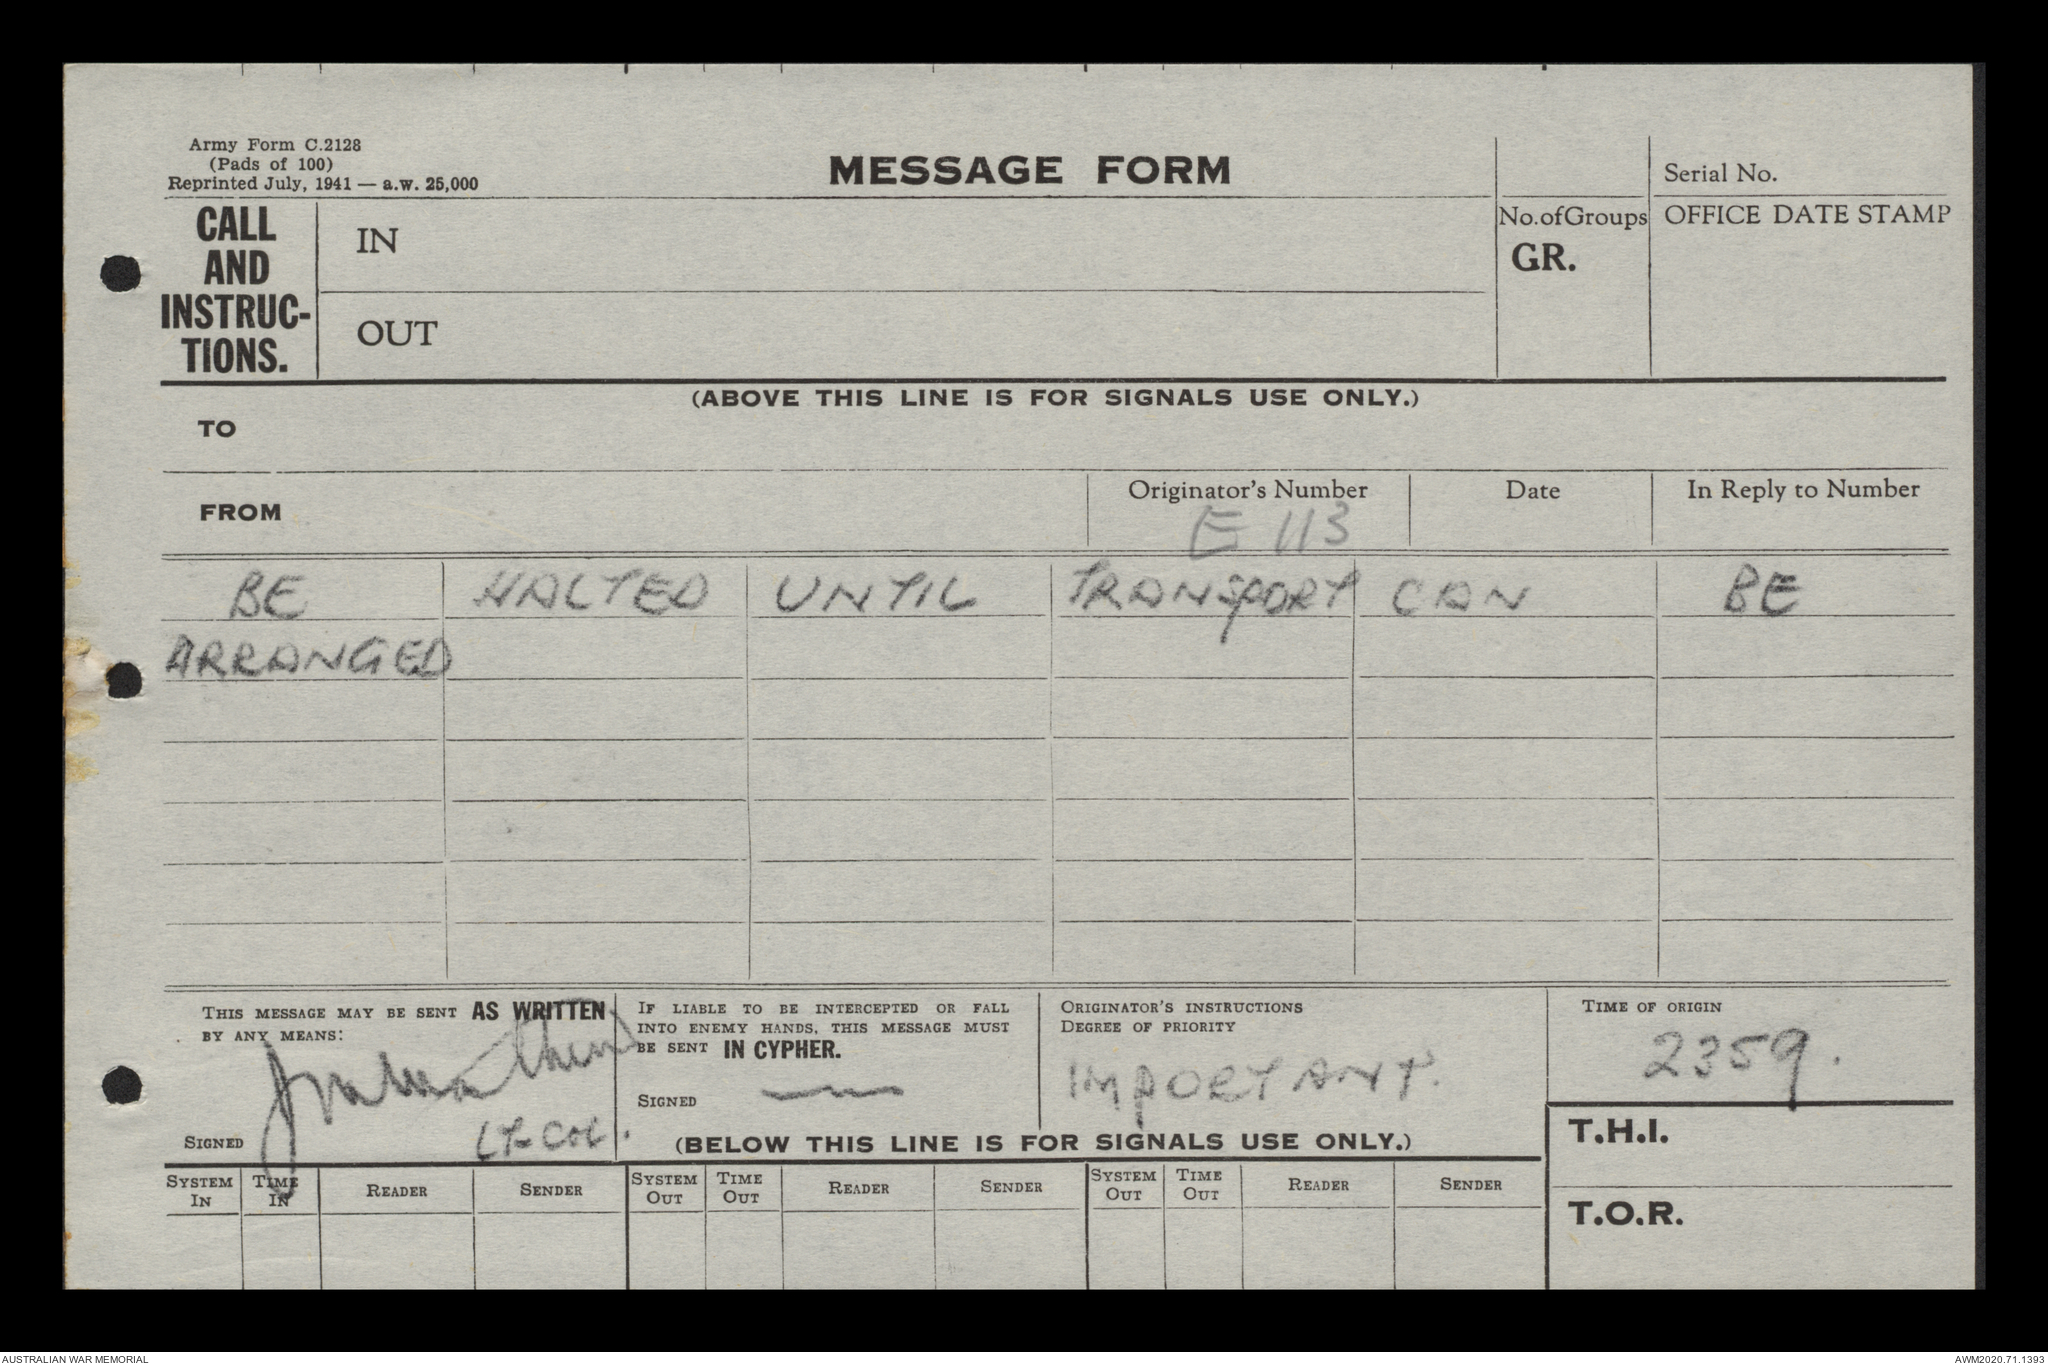 Army Form C.2128
(Pads of 100)
Reprinted July, 1941 — a.w. 25,000
MESSAGE FORM
Serial No.
CALL
AND
INSTRUC-
TIONS.
IN
OUT
No.ofGroups
GR.
OFFICE DATE STAMP
(ABOVE THIS LINE IS FOR SIGNALS USE ONLY.)
TO
FROM
Originator's Number
E 113
Date
In Reply to Number
BE HALTED UNTIL TRANSPORT CAN BE
ARRANGED
THIS MESSAGE MAY BE SENT AS WRITTEN
BY ANY MEANS:
SIGNED
Lt Col.
IF LIABLE TO BE INTERCEPTED OR FALL
INTO ENEMY HANDS, THIS MESSAGE MUST
BE SENT IN CYPHER.
SIGNED
ORIGINATOR'S INSTRUCTIONS
DEGREE OF PRIORITY
IMPORTANT.
TIME OF ORIGIN
2359.
(BELOW THIS LINE IS FOR SIGNALS USE ONLY.)
T.H.I.
T.O.R.
SYSTEM IN TIME IN READER SENDER SYSTEM OUT TIME OUT READER SENDER SYSTEM OUT TIME OUT READER SENDER
AUSTRALIAN WAR MEMORIAL
AWM2020.71.1393